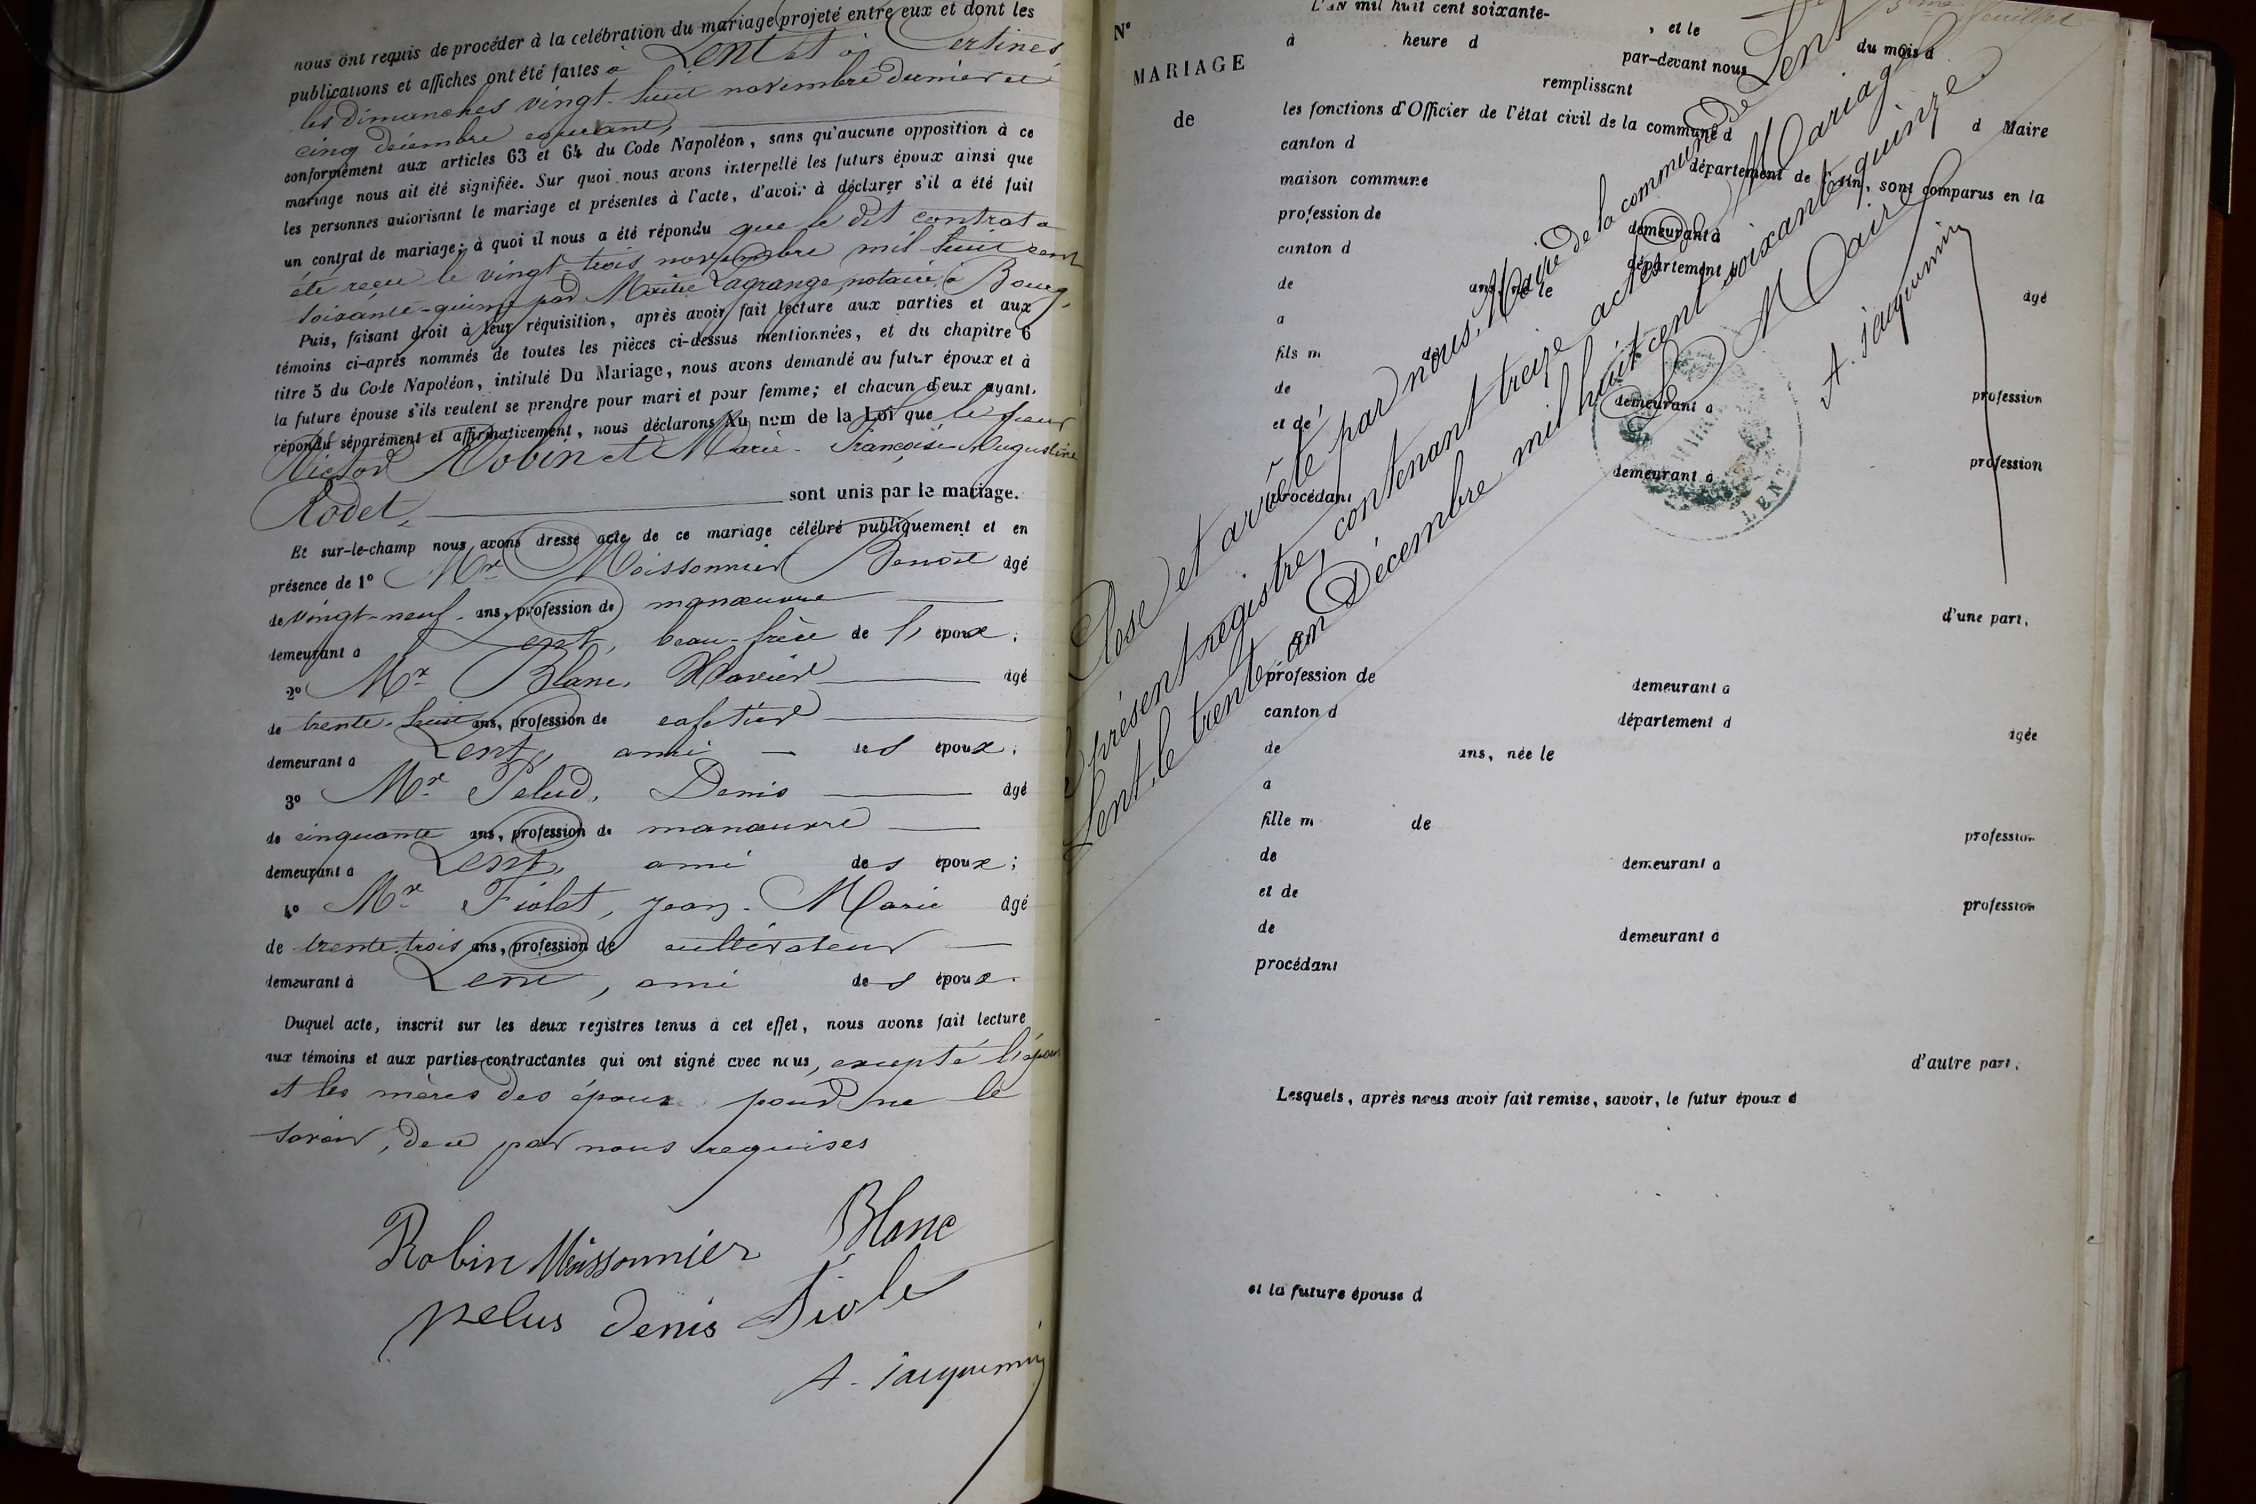 nous ont requis de procéder à la celébration du mariage projeté entre eux et dont les
publications et affiches ont été faites à Lent et à Certines,
les dimanches vingt-huit novembre dernier et
cinq décembre courant,
conformément aux articles 63 et 64 du Code Napoléon, sans qu'aucune opposition à ce
mariage nous ait été signifiée. Sur quoi nous avons interpellé les futurs époux ainsi que
les personnes autorisant le mariage et présentes à l'acte, d'avoir à déclarer s'il a été fait
un contrat de mariage; à quoi il nous a été répondu que le dit contrat a
été reçu le vingt-trois novembre mil huit cent
soixante-quinze par Maître Lagrange notaire à Bourg.
Puis, faisant droit à leur réquisition, après avoir fait lecture aux parties et aux
témoins ci-après nommés de toutes les pièces ci-dessus mentionnées, et du chapitre 6
titre 5 du Code Napoléon, intitulé Du Mariage, nous avons demandé au futur époux et à
la future épouse s'ils veulent se prendre pour mari et pour femme; et chacun d'eux ayant
répondu séparément et affirmativement, nous déclarons Au nom de la Loi que le sieur
Victor Robin et Marie-Françoise-Augustine
Rodet, sont unis par le mariage.
Et sur-le-champ nous avons dressé acte de ce mariage célébré publiquement et en
présence de 1º Mr Moissonnier Benoît agé
de vingt-neuf ans, profession de manœuvre
demeurant à Lent, beau-frère de l' époux;
2º Mr Blanc, Xavier agé
de trente-huit ans, profession de cafetier
demeurant à Lent, ami des époux;
3º Mr Pelud, Denis agé
de cinquante ans, profession de manœuvre
demeurant à Lent, ami des époux;
4º Mr Fiolet, Jean-Marie agé
de trente-trois ans, profession de cultivateur
demeurant à Lent, ami des époux.
Duquel acte, inscrit sur les deux registres tenus à cet effet, nous avons fait lecture
aux témoins et aux parties contractantes qui ont signé avec nous, excepté l'épouse
et les mères des époux pour ne le
savoir, de ce par nous requises
Robin Moissonnier Blanc
pelus denis Fiole
A. Jacquemin
Nº
MARIAGE
de
L'AN mil huit cent soixante- , et le
à heure d du mois d
par-devant nous
remplissant
les fonctions d'Officier de l'état civil de la commune d d Maire
canton d département de l'Ain, sont comparus en la
maison commune
profession de demeurant à
canton d département d
de ans, né le agé
a
fils m de
de demeurant à profession
et de
demeurant à profession
procédant
d'une part,
profession de demeurant à
canton d département d
de ans, née le agée
a
fille m de
de demeurant à profession
et de
de demeurant à profession
procédant
d'autre part,
Lesquels, après nous avoir fait remise, savoir, le futur époux d
et la future épouse d
Clos et arrêté par nous, Maire de la commune de Lent
le présent registre, contenant treize actes de Mariage
Lent, le trente-un Décembre mil huit cent soixante quinze.
Le Maire
A. Jacquemin
MAIRIE
LENT